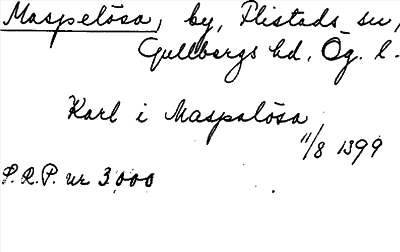 Maspelösa, by, Flistads sn,
Gullbergs hd, Ög. l.
Karl i Maspalösa
11/8 1399
S.R.P. nr 3000